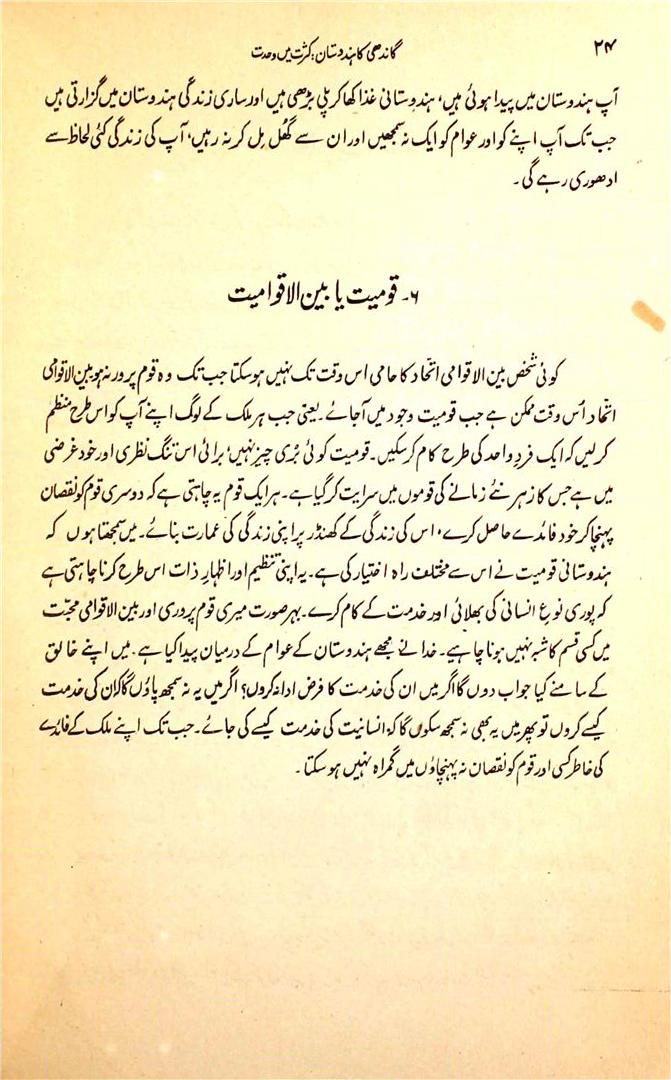 ۲۴
گاندھی کا ہندوستان: کثرت میں وحدت
آپ ہندوستان میں پیدا ہوئی ہیں، ہندوستانی غذا کھا کر پلی بڑھی ہیں اور ساری زندگی ہندوستان میں گزارتی ہیں
جب تک آپ اپنے کو اور عوام کو ایک نہ سمجھیں اور ان سے گھل مل کر نہ رہیں، آپ کی زندگی کئی لحاظ سے
ادھوری رہے گی۔
۶۔ قومیت یا بین الاقوامیت
کوئی شخص بین الاقوامی اتحاد کا حامی اس وقت تک نہیں ہو سکتا جب تک وہ قوم پرور نہ ہو بین الاقوامی
اتحاد اُس وقت ممکن ہے جب قومیت وجود میں آجائے۔ یعنی جب ہر ملک کے لوگ اپنے آپ کو اس طرح منظم
کرلیں کہ ایک فردِ واحد کی طرح کام کرسکیں۔ قومیت کوئی بُری چیز نہیں، برائی اس تنگ نظری اور خود غرضی
میں ہے جس کا زہر نئے زمانے کی قوموں میں سرایت کرگیا ہے۔ ہر ایک قوم یہ چاہتی ہے کہ دوسری قوم کو نقصان
پہنچا کر خود فائدے حاصل کرے، اس کی زندگی کے کھنڈر پر اپنی زندگی کی عمارت بنائے۔ میں سمجھتا ہوں کہ
ہندوستانی قومیت نے اس سے مختلف راہ اختیار کی ہے۔ یہ اپنی تنظیم اور اظہارِ ذات اس طرح کرنا چاہتی ہے
کہ پوری نوعِ انسانی کی بھلائی اور خدمت کے کام کرے۔ بہر صورت میری قوم پروری اور بین الاقوامی محبّت
میں کسی قسم کا شبہ نہیں ہونا چاہیے۔ خدا نے مجھے ہندوستان کے عوام کے درمیان پیدا کیا ہے۔ میں اپنے خالق
کے سامنے کیا جواب دوں گا اگر میں ان کی خدمت کا فرض ادا نہ کروں؟ اگر میں یہ نہ سمجھ پاؤں گا کہ ان کی خدمت
کیسے کروں تو پھر میں یہ بھی نہ سمجھ سکوں گا کہ انسانیت کی خدمت کیسے کی جائے۔ جب تک اپنے ملک کے فائدے
کی خاطر کسی اور قوم کو نقصان نہ پہنچاؤں میں گمراہ نہیں ہوسکتا۔